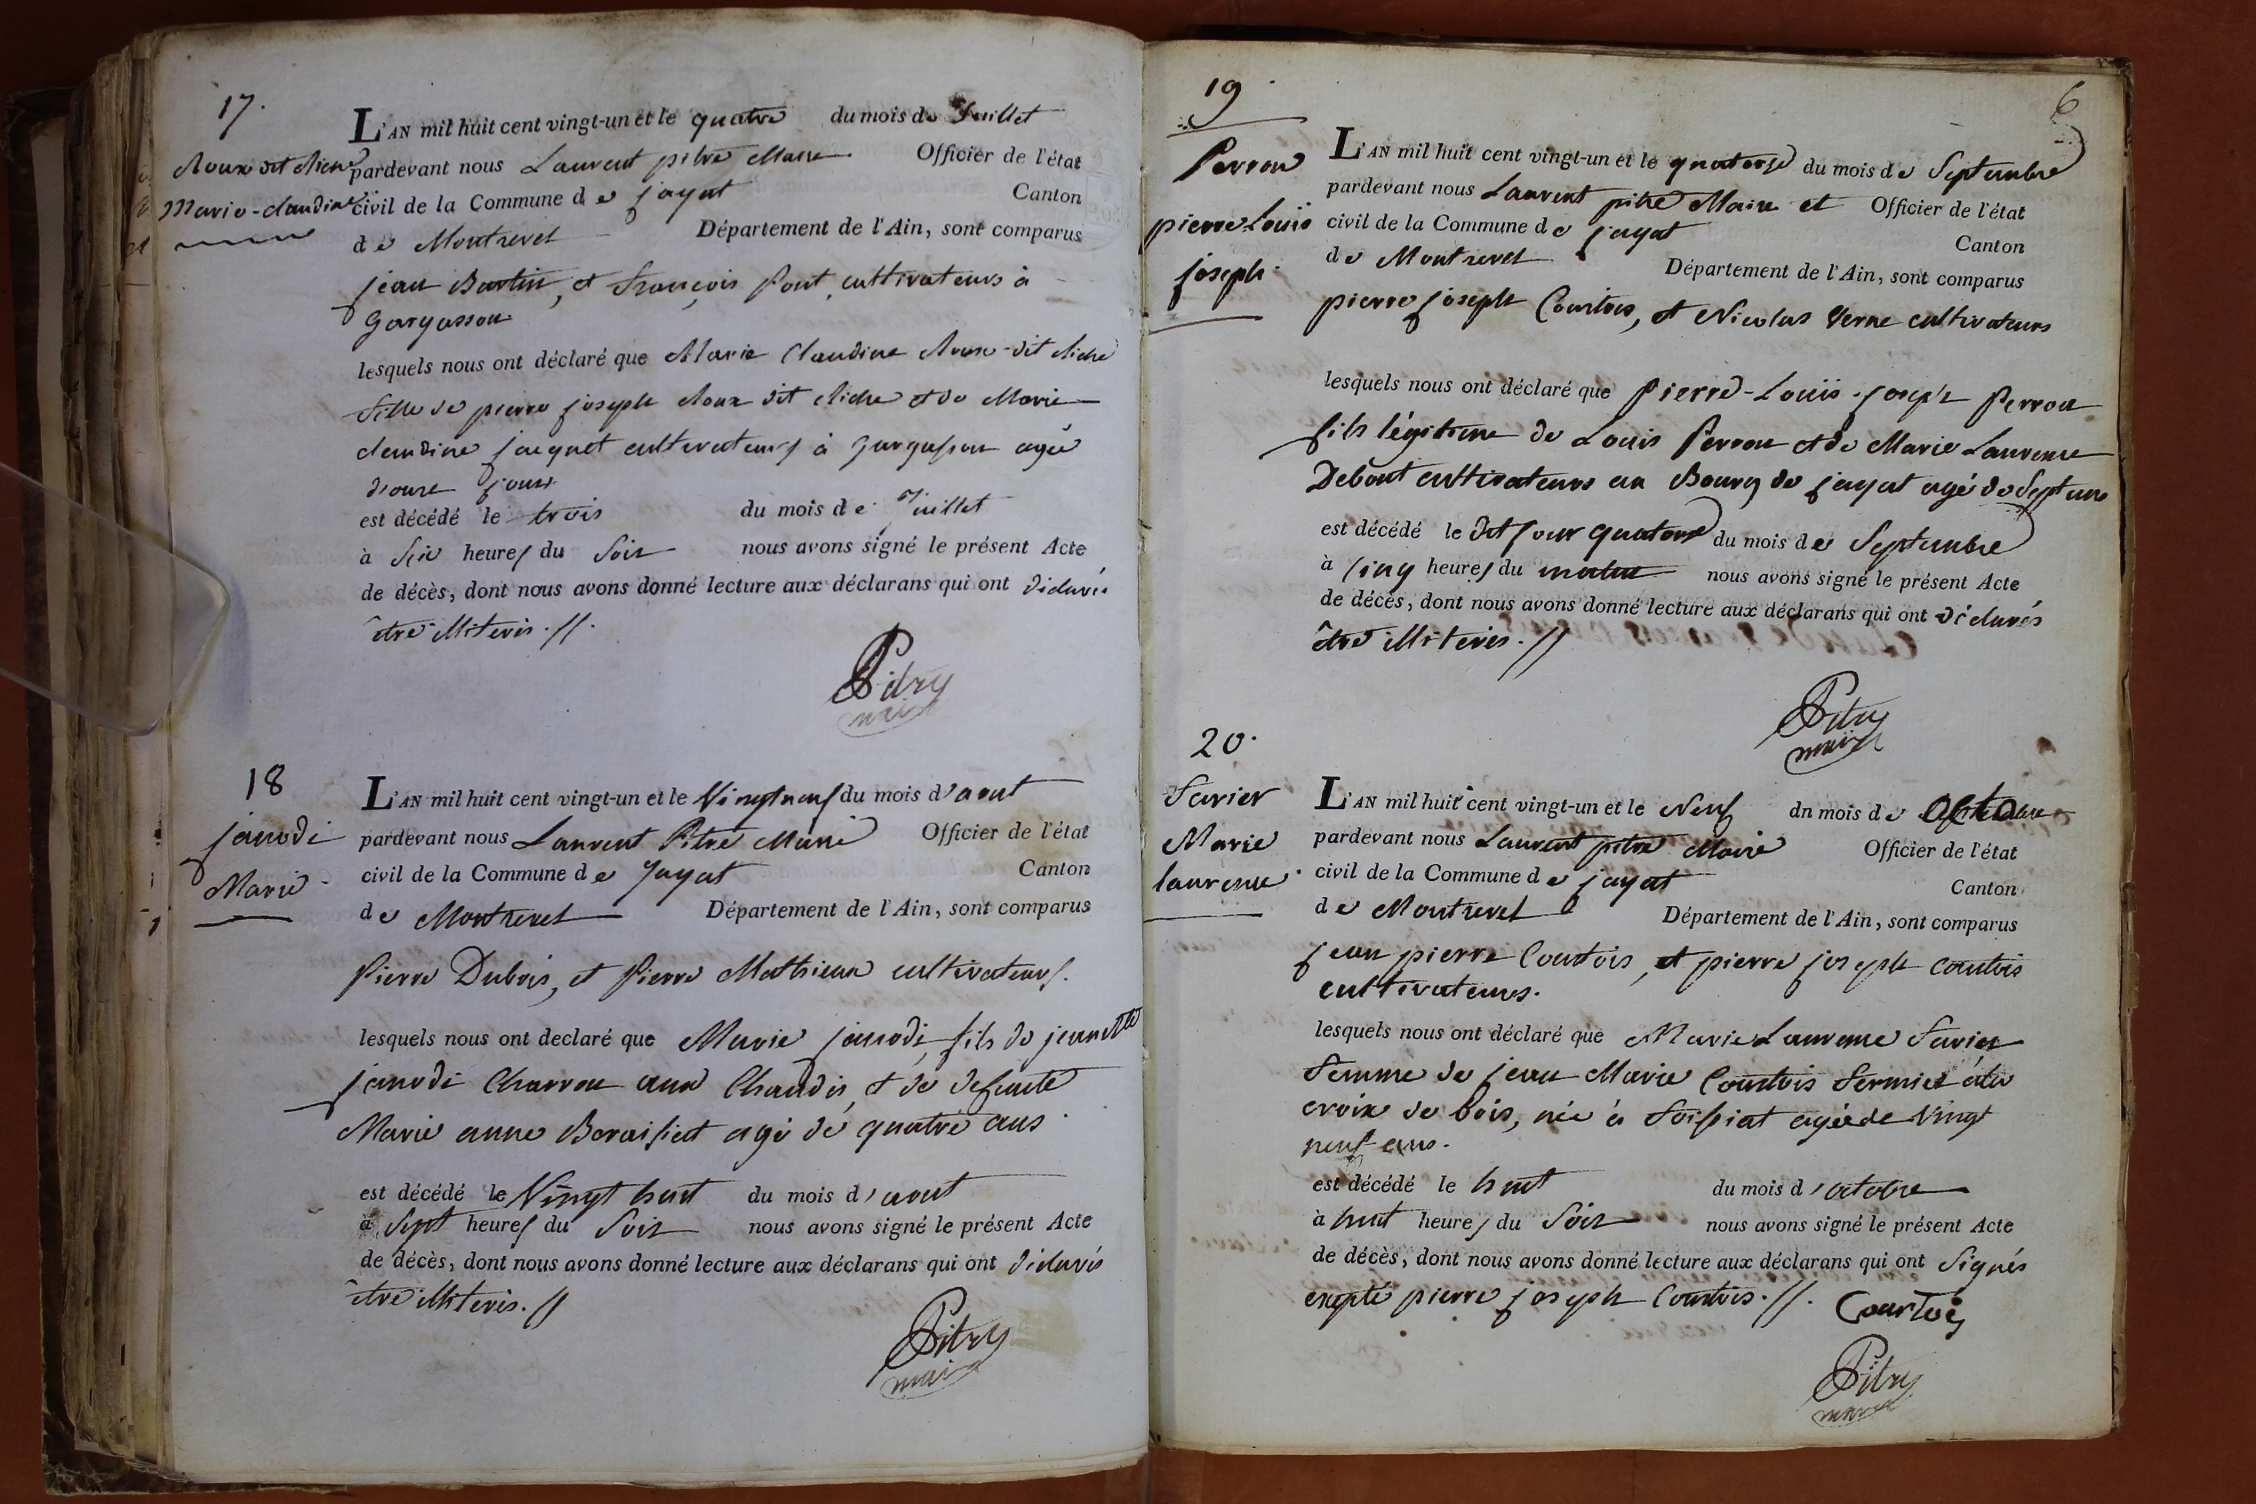 17.
Roux dit Riche
Marie-claudine
L'AN mil huit cent vingt-un et le quatre du mois de Juillet
pardevant nous Laurent pitre Maire Officier de l'état
civil de la Commune de jayat Canton
de Montrevel Département de l'Ain, sont comparus
jean Bertin, et François Pont, cultivateurs à
Gargasson
lesquels nous ont déclaré que Marie Claudine Roux dit Riche
fille de pierre joseph Roux dit Riche et de Marie
claudine jacquet cultivateurs à gargasson agée
d'onze jours
est décédé le trois du mois de Juillet
à Six heures du Soir nous avons signé le présent Acte
de décès, dont nous avons donné lecture aux déclarans qui ont déclarés
être illiterés.//.
Pitre
maire
18
janodi
Marie
L'AN mil huit cent vingt-un et le Vingt neuf du mois d'aout
pardevant nous Laurent Pitre Maire Officier de l'état
civil de la Commune de Jayat Canton
de Montrevel Département de l'Ain, sont comparus
Pierre Dubois, et Pierre Mathieux cultivateurs.
lesquels nous ont declaré que Marie janodi, fils de jeannette
janodi Charron aux Chaudis, et de defunte
Marie anne agé de quatre ans
est décédé le Vingt huit du mois d'aout
à Sept heures du Soir nous avons signé le présent Acte
de décès, dont nous avons donné lecture aux déclarans qui ont déclarés
être illiterés.//
Pitre
maire
19
6
Perron
pierre Louïs
joseph
L'AN mil huit cent vingt-un et le quatorze du mois de Septembre
pardevant nous Laurent pitre Maire et Officier de l'état
civil de la Commune de jayat Canton
de Montrevel Département de l'Ain, sont comparus
pierre joseph Courtois, et Nicolas Verne cultivateurs
lesquels nous ont déclaré que Pierre-Louïs-joseph Perron
fils légitime de Louis Perron et de Marie Laurence
Debout cultivateurs au Bourg de jayat agé de Sept ans
est décédé le dit jour quatorze du mois de Septembre
à cinq heures du matin nous avons signé le présent Acte
de décès, dont nous avons donné lecture aux déclarans qui ont déclarés
être illiterés.//
Pitre
maire
20.
Favier
Marie
laurence
L'AN mil huit cent vingt-un et le Neuf dn mois de Octobre
pardevant nous Laurent pitre Maire Officier de l'état
civil de la Commune de jayat Canton
de Montrevel Département de l'Ain, sont comparus
jean pierre Courtois, et pierre joseph courtois
cultivateurs.
lesquels nous ont déclaré que Marie Laurence Favier
femme de jean Marie Courtois fermier à la
croix de bois, née à foissiat agée de Vingt
neuf ans.
est décédé le huit du mois d'octobre
à huit heures du Soir nous avons signé le présent Acte
de décès, dont nous avons donné lecture aux déclarans qui ont Signés
excepté pierre joseph Courtois.//. Courtois
Pitre
maire